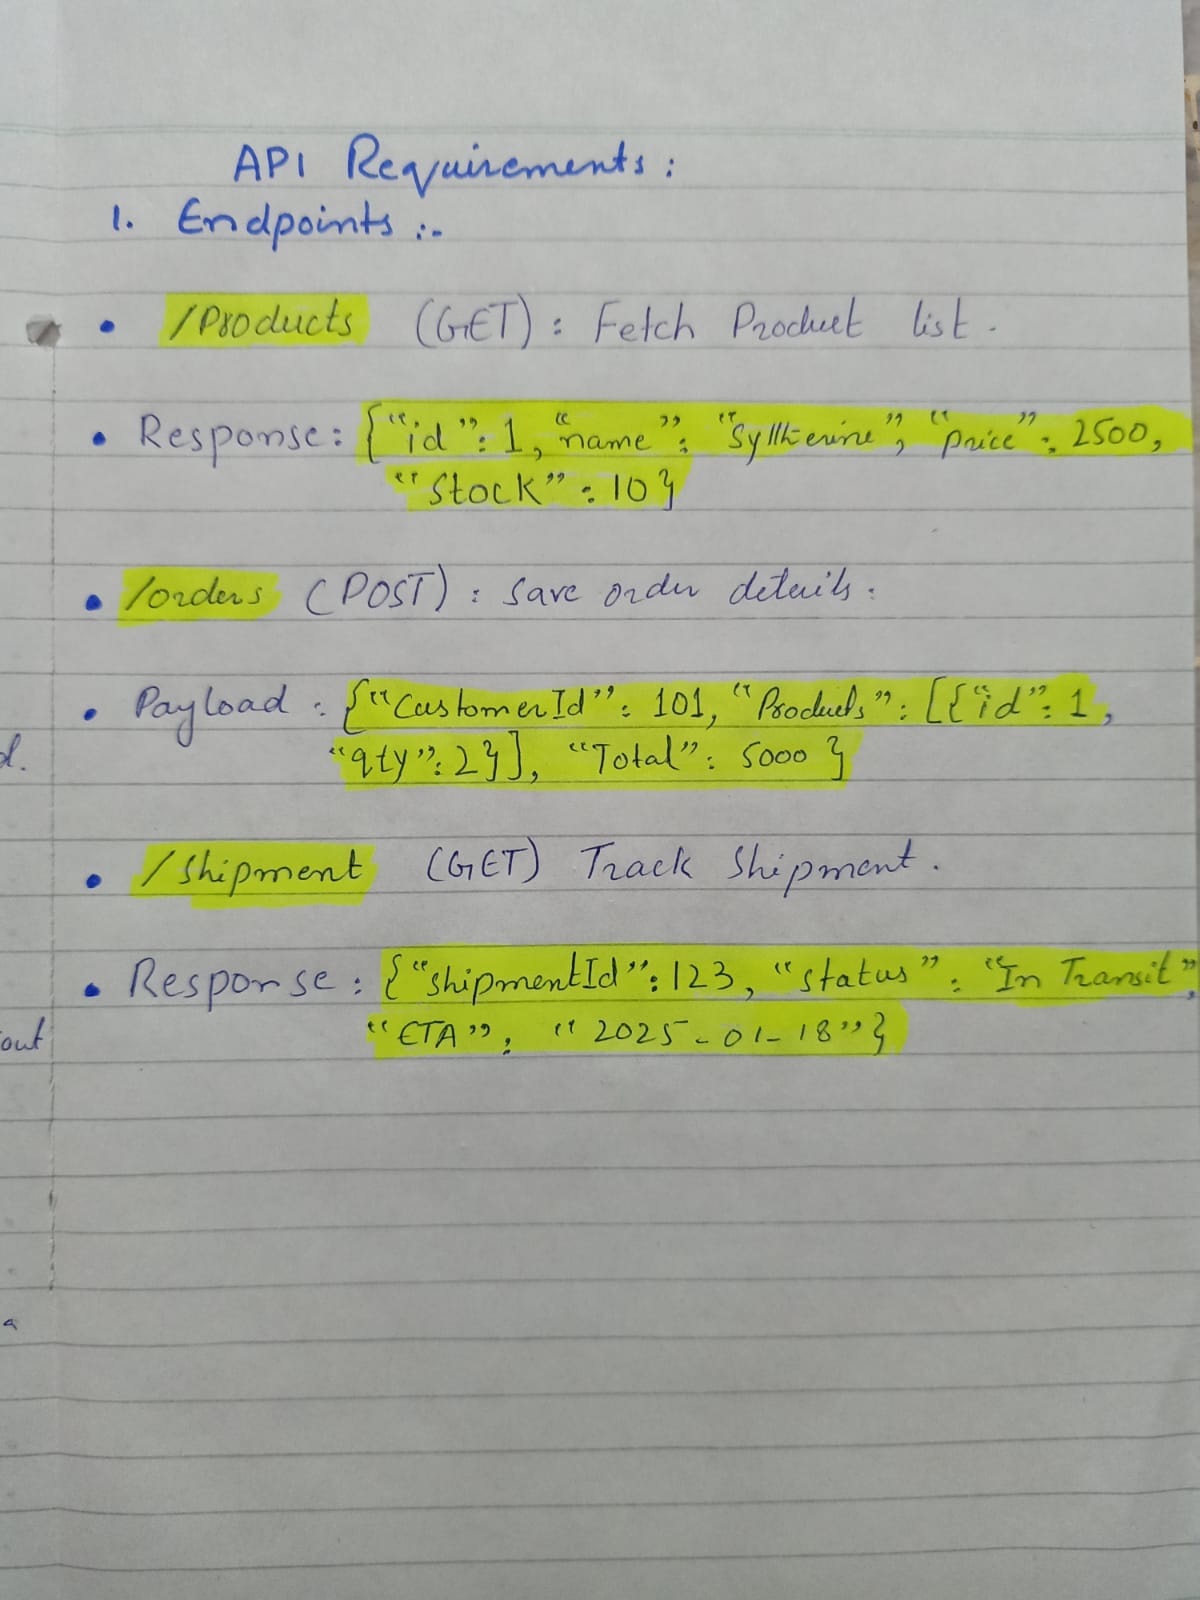 API Requirements :
1. Endpoints :-
• /Products (GET) : Fetch Product list.
• Response: {"id": 1, "name": "Syltherine", "price": 2500,
"Stock": 10}
• /orders (POST) : Save order details.
• Payload : {"CustomerId": 101, "Products": [{"id": 1,
"qty": 2}], "Total": 5000}
• /Shipment (GET) Track Shipment.
• Response : {"shipmentId": 123, "status": "In Transit",
"ETA": "2025-01-18"}
out